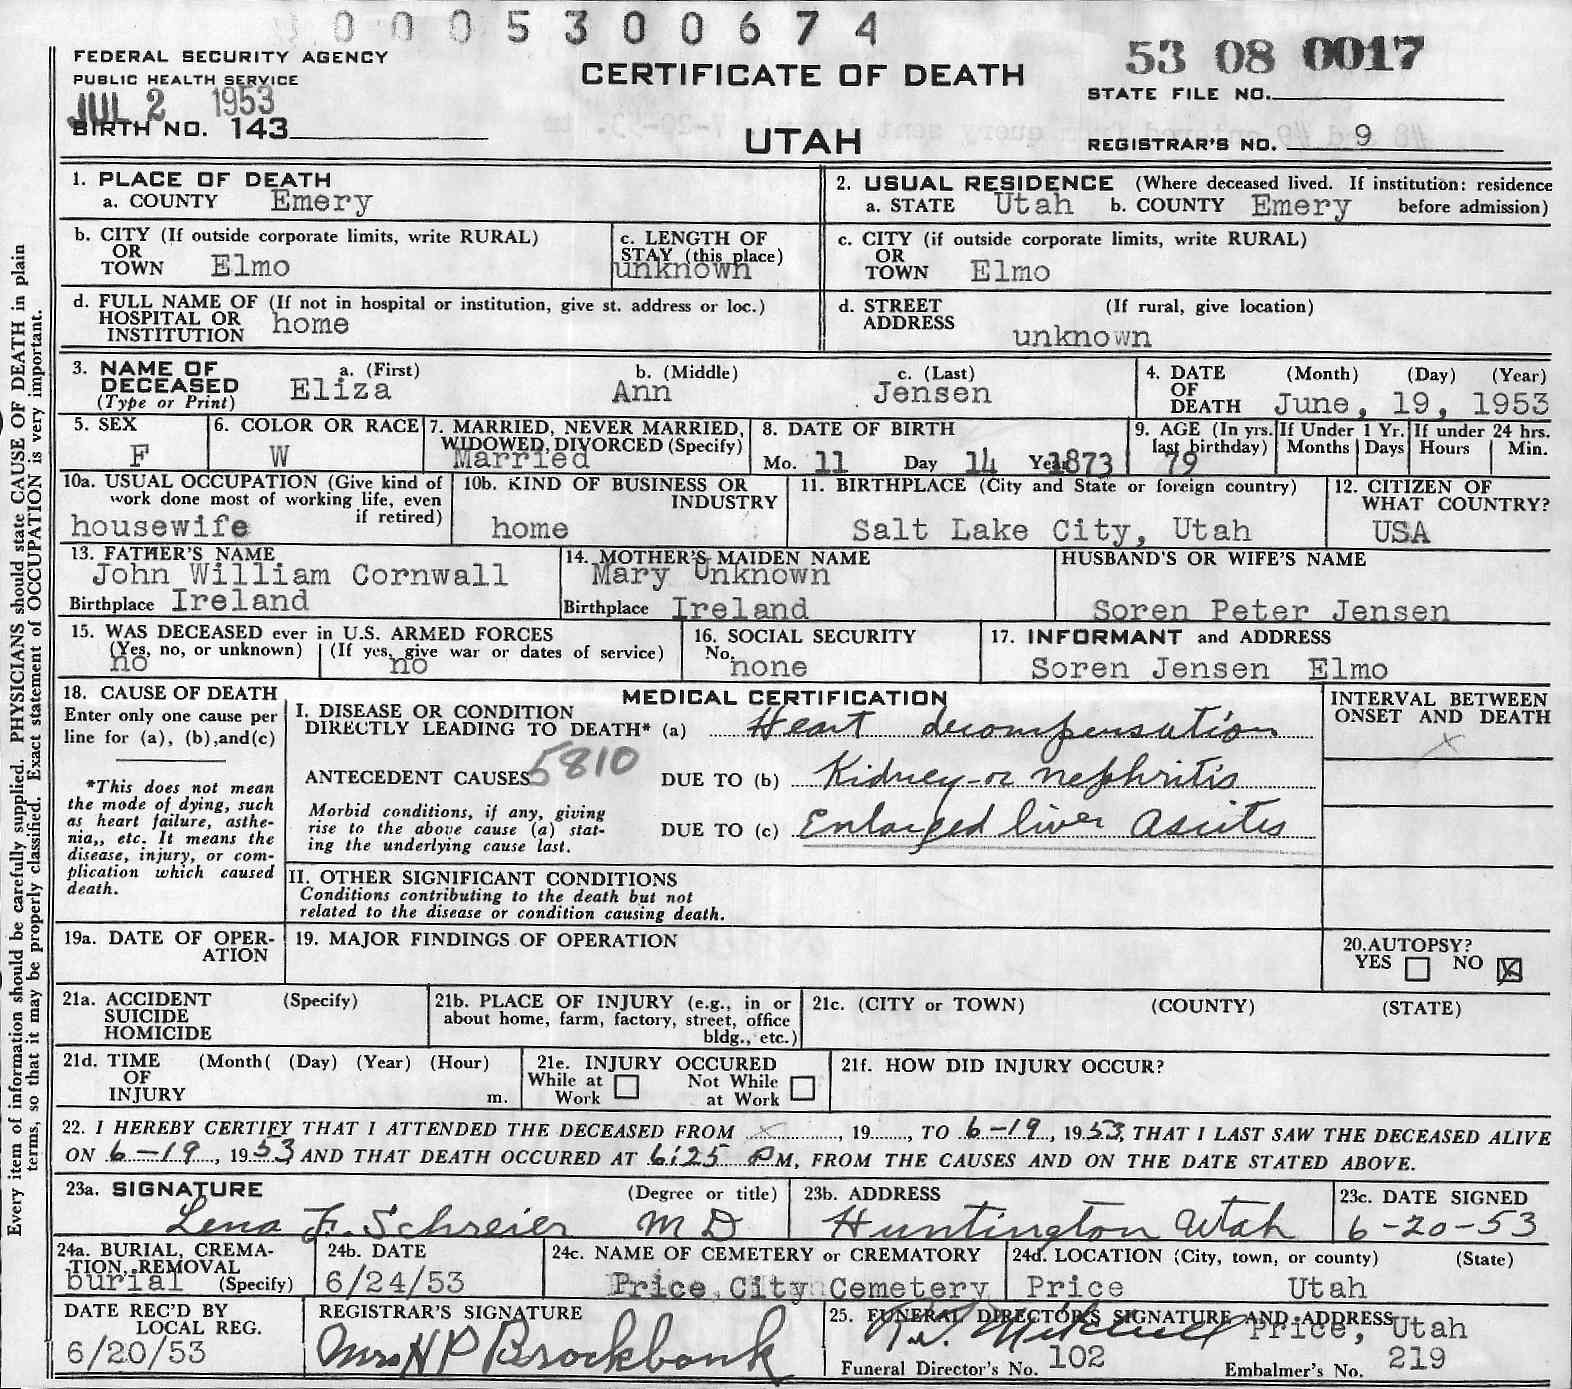 0005300674
FEDERAL SECURITY AGENCY
PUBLIC HEALTH SERVICE
JUL 2 1953
BIRTH NO. 143
CERTIFICATE OF DEATH
UTAH
53 08 0017
STATE FILE NO.
REGISTRAR'S NO. 9
Every item of information should be carefully supplied. PHYSICIANS should state CAUSE OF DEATH in plain
terms, so that it may be properly classified. Exact statement of OCCUPATION is very important.
1. PLACE OF DEATH
a. COUNTY Emery
2. USUAL RESIDENCE (Where deceased lived. If institution: residence
a. STATE Utah b. COUNTY Emery before admission)
b. CITY (If outside corporate limits, write RURAL)
OR
TOWN Elmo
c. LENGTH OF
STAY (this place)
unknown
c. CITY (if outside corporate limits, write RURAL)
OR
TOWN Elmo
d. FULL NAME OF (If not in hospital or institution, give st. address or loc.)
HOSPITAL OR home
INSTITUTION
d. STREET (If rural, give location)
ADDRESS
unknown
3. NAME OF a. (First) b. (Middle) c. (Last)
DECEASED Eliza Ann Jensen
(Type or Print)
4. DATE (Month) (Day) (Year)
OF
DEATH June, 19, 1953
5. SEX
F
6. COLOR OR RACE
W
7. MARRIED, NEVER MARRIED,
WIDOWED, DIVORCED (Specify)
Married
8. DATE OF BIRTH
Mo. 11 Day 14 Year 1873
9. AGE (In yrs. last birthday)
79
If Under 1 Yr.
Months Days
If under 24 hrs.
Hours Min.
10a. USUAL OCCUPATION (Give kind of
work done most of working life, even
if retired)
housewife
10b. KIND OF BUSINESS OR
INDUSTRY
home
11. BIRTHPLACE (City and State or foreign country)
Salt Lake City, Utah
12. CITIZEN OF
WHAT COUNTRY?
USA
13. FATHER'S NAME
John William Cornwall
Birthplace Ireland
14. MOTHER'S MAIDEN NAME
Mary Unknown
Birthplace Ireland
HUSBAND'S OR WIFE'S NAME
Soren Peter Jensen
15. WAS DECEASED ever in U.S. ARMED FORCES
(Yes, no, or unknown) (If yes, give war or dates of service)
no no
16. SOCIAL SECURITY
No.
none
17. INFORMANT and ADDRESS
Soren Jensen Elmo
18. CAUSE OF DEATH
Enter only one cause per
line for (a), (b),and(c)
*This does not mean
the mode of dying, such
as heart failure, asthe-
nia,, etc. It means the
disease, injury, or com-
plication which caused
death.
MEDICAL CERTIFICATION
I. DISEASE OR CONDITION
DIRECTLY LEADING TO DEATH* (a) Heart decompensation
ANTECEDENT CAUSES 5810 DUE TO (b) Kidney - or nephritis
Morbid conditions, if any, giving
rise to the above cause (a) stat-
ing the underlying cause last.
DUE TO (c) Enlarged liver Ascites
II. OTHER SIGNIFICANT CONDITIONS
Conditions contributing to the death but not
related to the disease or condition causing death.
INTERVAL BETWEEN
ONSET AND DEATH
x
19a. DATE OF OPER-
ATION
19. MAJOR FINDINGS OF OPERATION
20.AUTOPSY?
YES NO X
21a. ACCIDENT (Specify)
SUICIDE
HOMICIDE
21b. PLACE OF INJURY (e.g., in or
about home, farm, factory, street, office
bldg., etc.)
21c. (CITY or TOWN) (COUNTY) (STATE)
21d. TIME (Month( (Day) (Year) (Hour)
OF
INJURY m.
21e. INJURY OCCURED
While at Not While
Work at Work
21f. HOW DID INJURY OCCUR?
22. I HEREBY CERTIFY THAT I ATTENDED THE DECEASED FROM x, 19......, TO 6-19, 1953, THAT I LAST SAW THE DECEASED ALIVE
ON 6-19, 1953, AND THAT DEATH OCCURED AT 6:25 PM, FROM THE CAUSES AND ON THE DATE STATED ABOVE.
23a. SIGNATURE (Degree or title)
Lena F. Schreier M D
23b. ADDRESS
Huntington Utah
23c. DATE SIGNED
6-20-53
24a. BURIAL, CREMA-
TION, REMOVAL
burial (Specify)
24b. DATE
6/24/53
24c. NAME OF CEMETERY or CREMATORY
Price City Cemetery
24d. LOCATION (City, town, or county) (State)
Price Utah
DATE REC'D BY
LOCAL REG.
6/20/53
REGISTRAR'S SIGNATURE
Mrs H P Brockbank
25. FUNERAL DIRECTOR'S SIGNATURE AND ADDRESS
Mitchell Price, Utah
Funeral Director's No. 102 Embalmer's No. 219